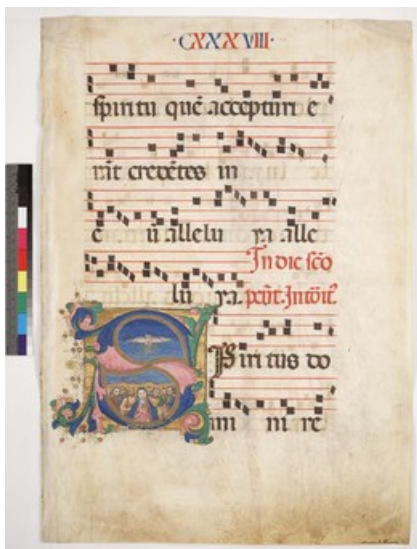 ·CXXXVIII·
spiritu quē accepturi e
rāt credētes in
e ū allelu ya alle
In die scō
lu ya. pēt. Introit.
SPiritus do
mi ni re